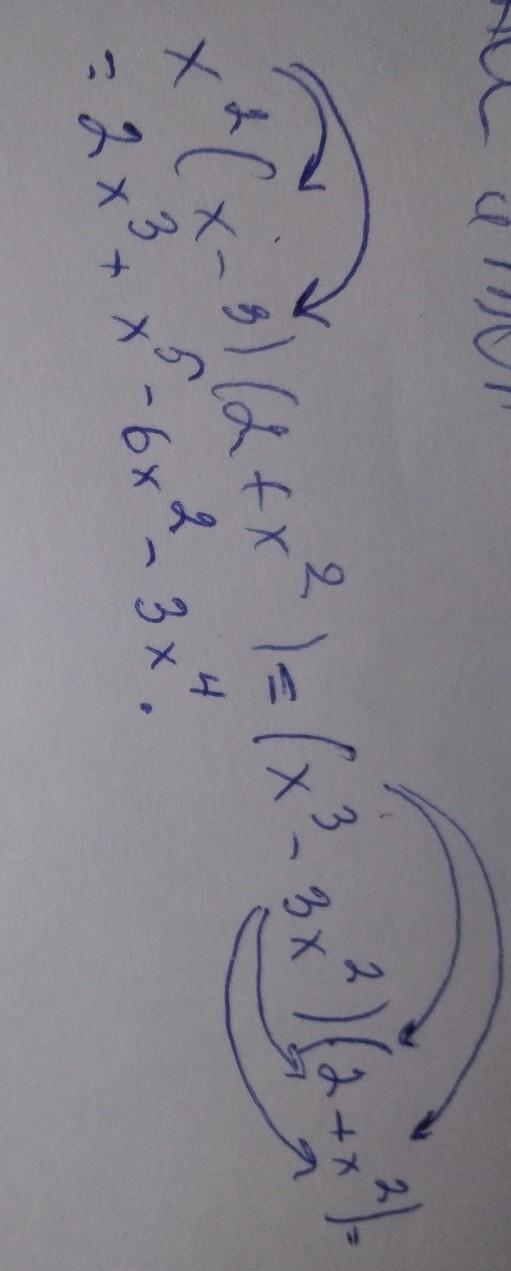 x²(x-3)(2+x²)=(x³-3x²)(2+x²)=
=2x³+x⁵-6x²-3x⁴.